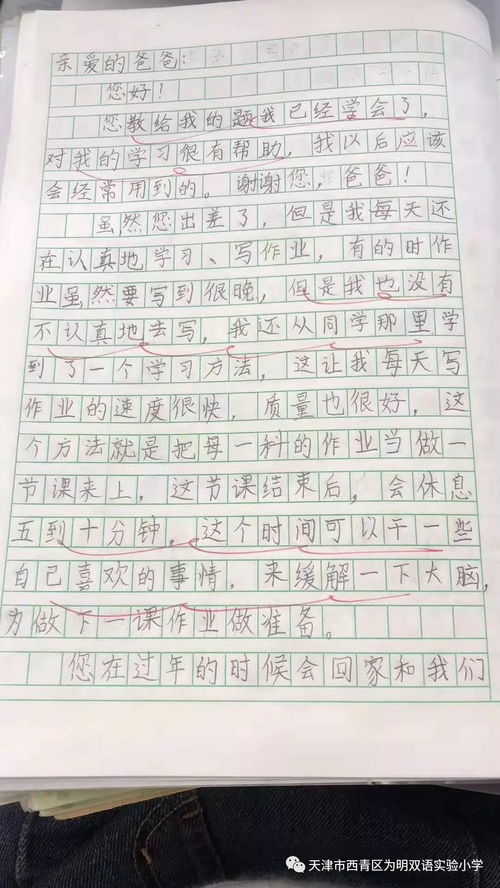 亲爱的爸爸：
您好！
您教给我的题我已经学会了，
对我的学习很有帮助，我以后应该
会经常用到的。谢谢您，爸爸！
虽然您出差了，但是我每天还
在认真地学习、写作业，有的时作
业虽然要写到很晚，但是我也没有
不认真地去写，我还从同学那里学
到了一个学习方法，这让我每天写
作业的速度很快，质量也很好，这
个方法就是把每一科的作业当做一
节课来上，这节课结束后，会休息
五到十分钟，这个时间可以干一些
自己喜欢的事情，来缓解一下大脑，
为做下一课作业做准备。
您在过年的时候会回家和我们
天津市西青区为明双语实验小学